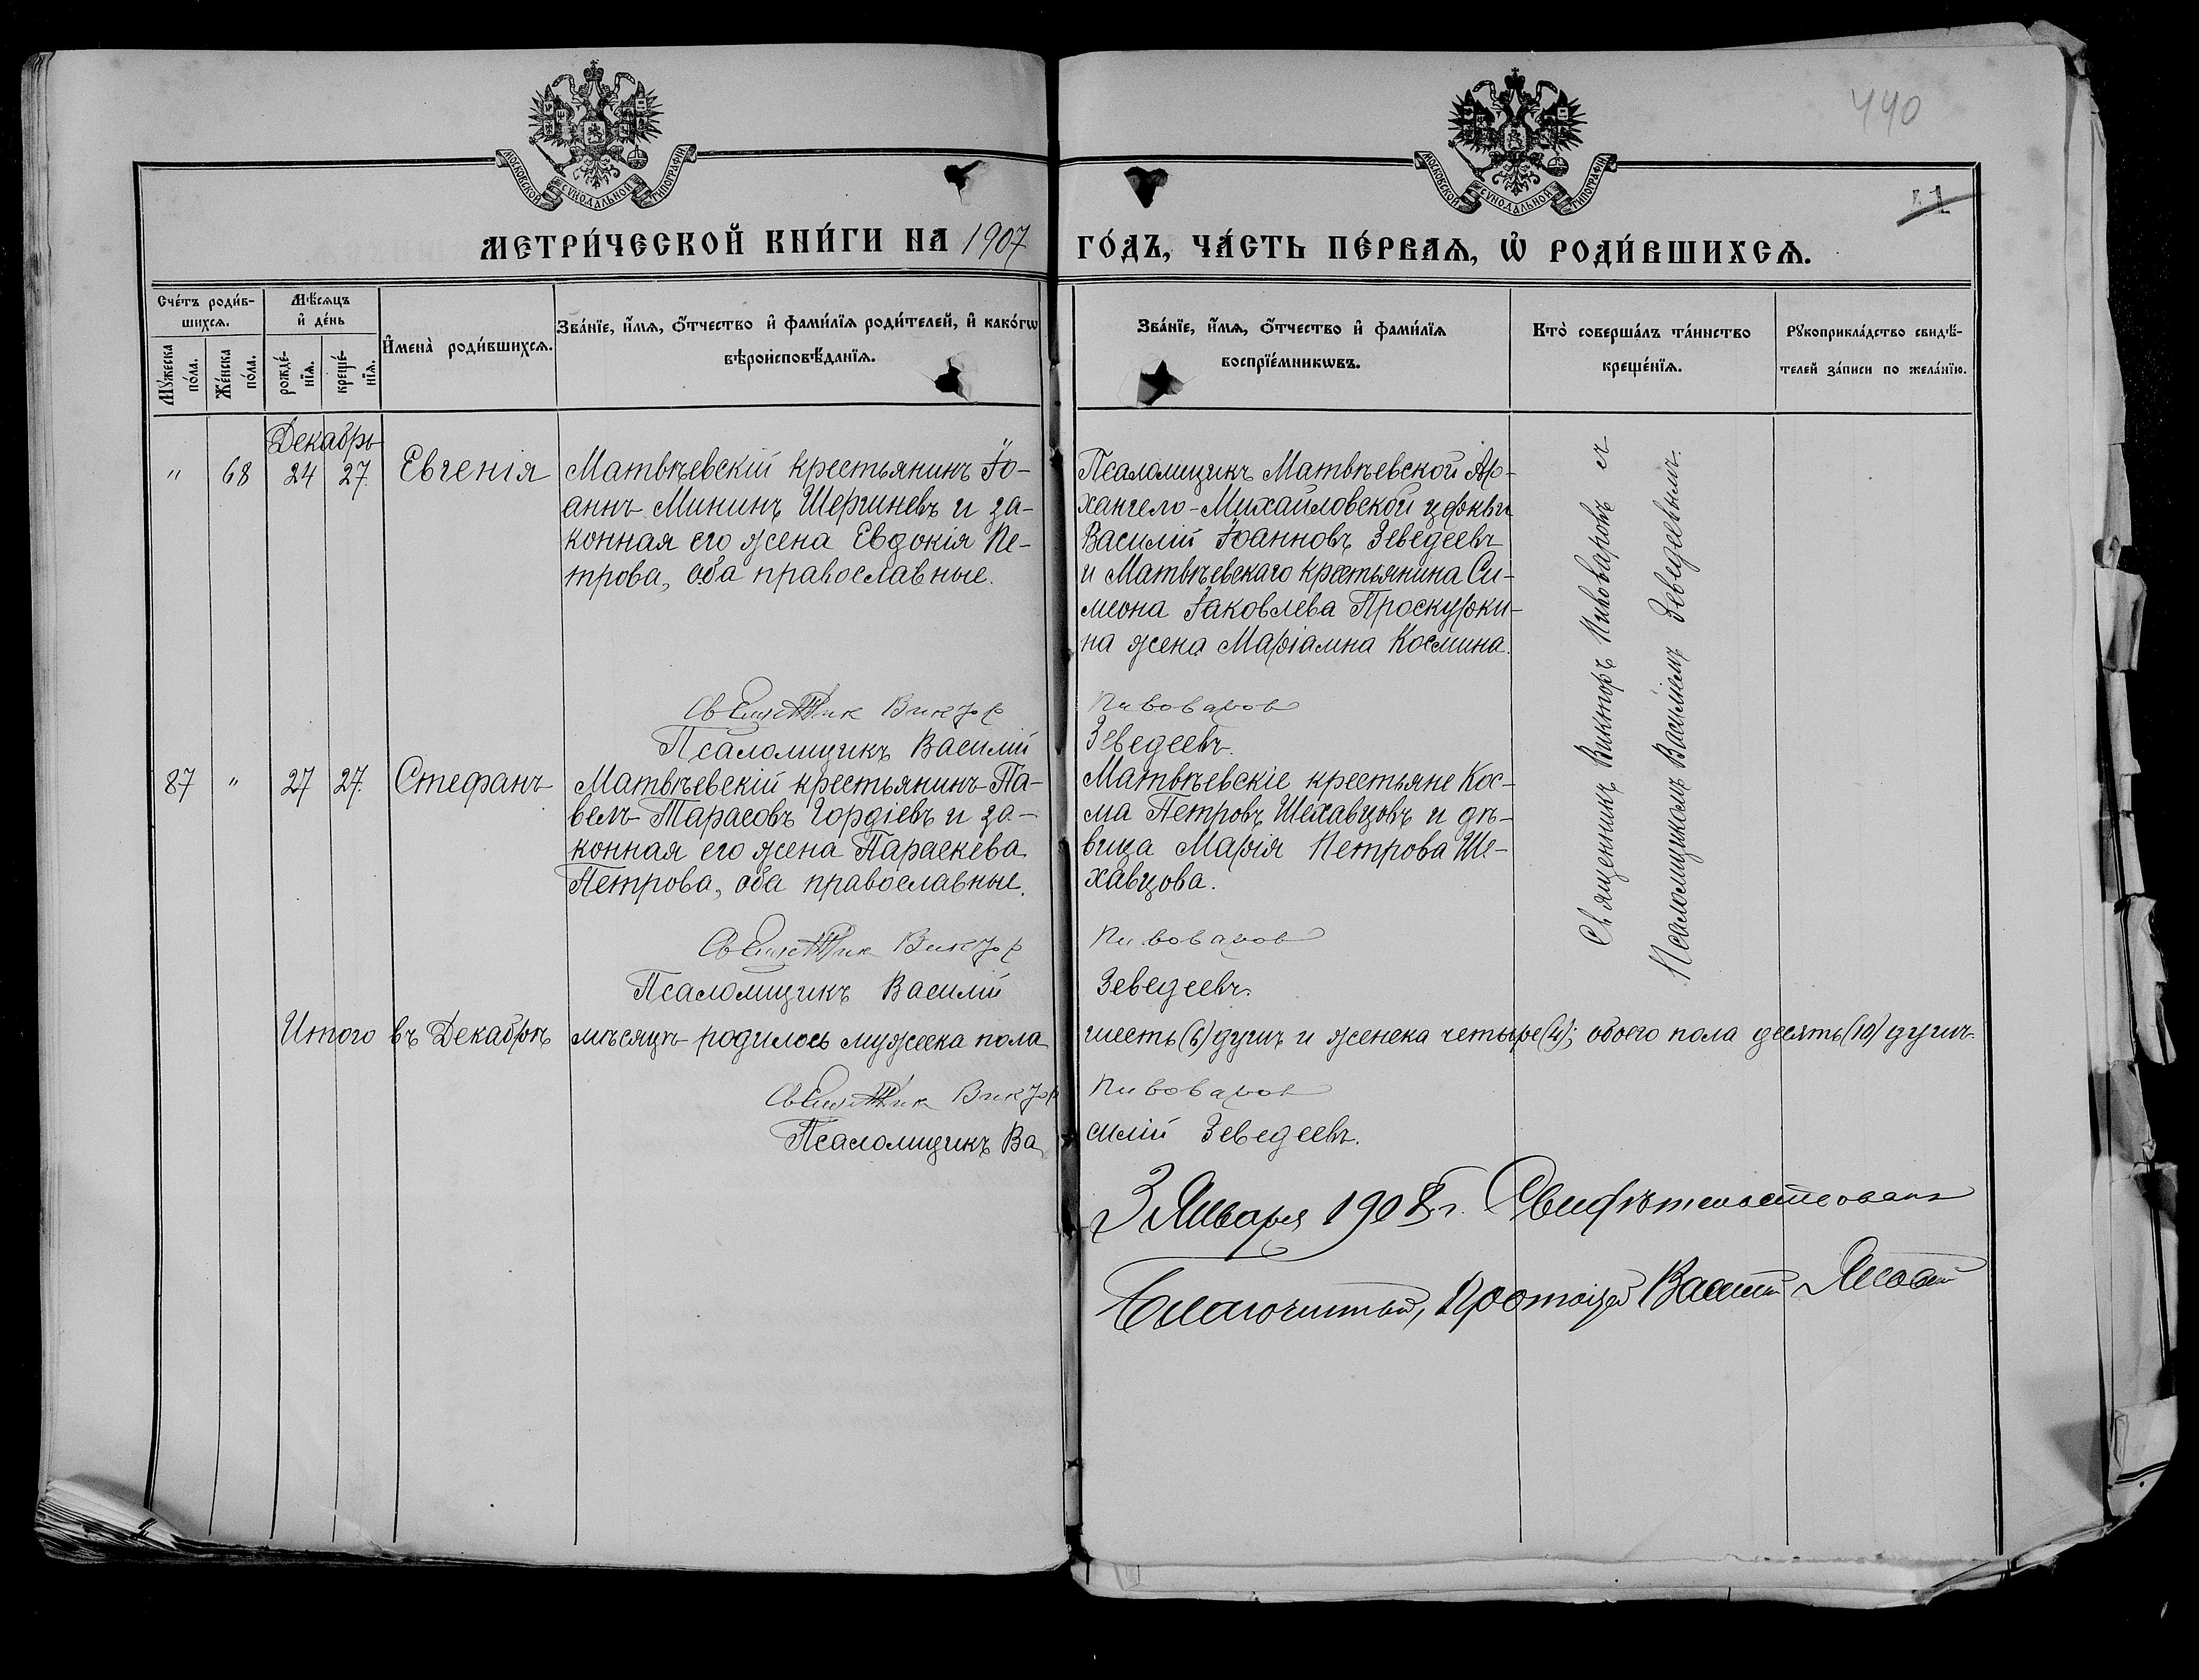 440
41
МОСКОВСКОЙ СѴНОДАЛЬНОЙ ТИПОГРАФІИ
МОСКОВСКОЙ СѴНОДАЛЬНОЙ ТИПОГРАФІИ
МЕТРИ́ЧЕСКОЙ КНИ́ГИ НА 1907 ГО́ДЪ, ЧА́СТЬ ПЕ́РВАѦ, Ѡ҆ РОДИ́ВШИХСѦ.
Сче́тъ роди́в-
шихсѧ.
Мꙋ́жеска по́ла.
Же́нска по́ла.
Мѣ́сѧцъ
и҆ де́нь
рожде́-
нїѧ.
креще́-
нїѧ.
И҆мена̀ роди́вшихсѧ.
Зва́нїе, и҆́мѧ, ѻ҆́тчество и҆ фами́лїѧ роди́телей, и҆ како́гѡ
вѣроисповѣ́данїѧ.
Зва́нїе, и҆́мѧ, ѻ҆́тчество и҆ фами́лїѧ
воспрїе́мникѡвъ.
Кто̀ соверша́лъ та́инство
креще́нїѧ.
Рꙋкоприкла́дство свидѣ́-
телей за́писи по жела́нїю.
Декабрь
" 68 24 27. Евгенія
Матвѣевскій крестьянинъ Іо-
аннъ Мининъ Шергиневъ и за-
конная его жена Евдокія Пе-
трова, оба православные.
Псаломщикъ Матвѣевской Ар-
хангело-Михайловской церкви
Василій Іоанновъ Зеведеевъ
и Матвѣевскаго крестьянина Си-
меона Іаковлева Проскурки-
на жена Маріамна Космина.
Священникъ Викторъ Пивоваровъ съ
Псаломщикомъ Василіемъ Зеведеевымъ.
Виктор Пивоваров
Псаломщикъ Василій Зеведеевъ.
87 " 27 27. Стефанъ
Матвѣевскій крестьянинъ Па-
велъ Тарасовъ Гордіевъ и за-
конная его жена Параскева
Петрова, оба православные.
Матвѣевскіе крестьяне Кос-
ма Петровъ Шехавцовъ и дѣ-
вица Марія Петрова Ше-
хавцова.
Виктор Пивоваров
Псаломщикъ Василій Зеведеевъ.
Итого въ Декабрѣ мѣсяцѣ родилось мужеска пола шесть (6) душъ и женска четыре (4); обоего пола десять (10) душъ.
Виктор Пивоваров
Псаломщикъ Василій Зеведеевъ.
3 Января 1908 г. Свидѣтельствовалъ
Благочинный, Протоіерей Василій